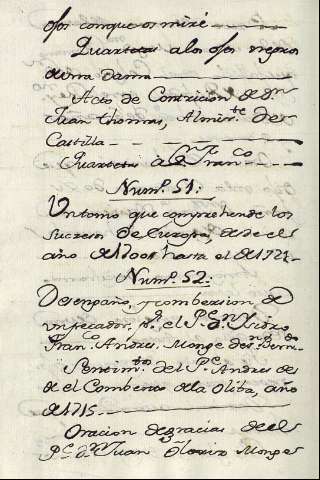 ofos con que os miré
Quartetas a los ofos negros
de una Dama
Acto de Contricion de Dⁿ
Juan Thomas, Almir.te de
Castilla
Quartetas a Sⁿ Franco
Num.º 51.
Un tomo que comprehende los
sucesos de Europa, desde el
año de 1700 hasta el de 172
Num.º 52.
Desengaño, y combersion de
un pecador, pʳ el P.e Dⁿ Isidro
Franco Andres, Monge de Sⁿ Bern.do
Sentim.tos del P.e Andres de
el Combento de la Oliba, año
de 1715.
Oracion de gracias de el
P.e Dⁿ Juan Monge